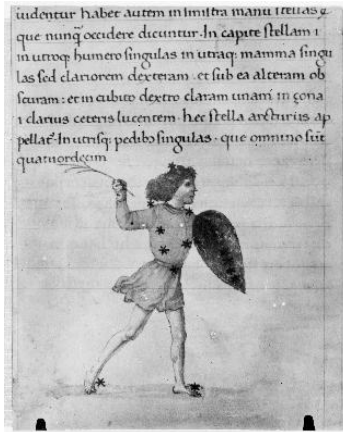 uidentur habet autem in sinistra manu stellas
que nunq̃ occidere dicuntur. In capite stellam i
in utroq; humero singulas in utraq; mamma singu
las sed clariorem dexteram. et sub ea alteram ob
scuram: et in cubito dextro claram unam in zona
i clarius ceteris lucentem. hec stella arcturus ap
pellat̃. In utrisq; pedib; singulas. que omnino sũt
quatuordecim